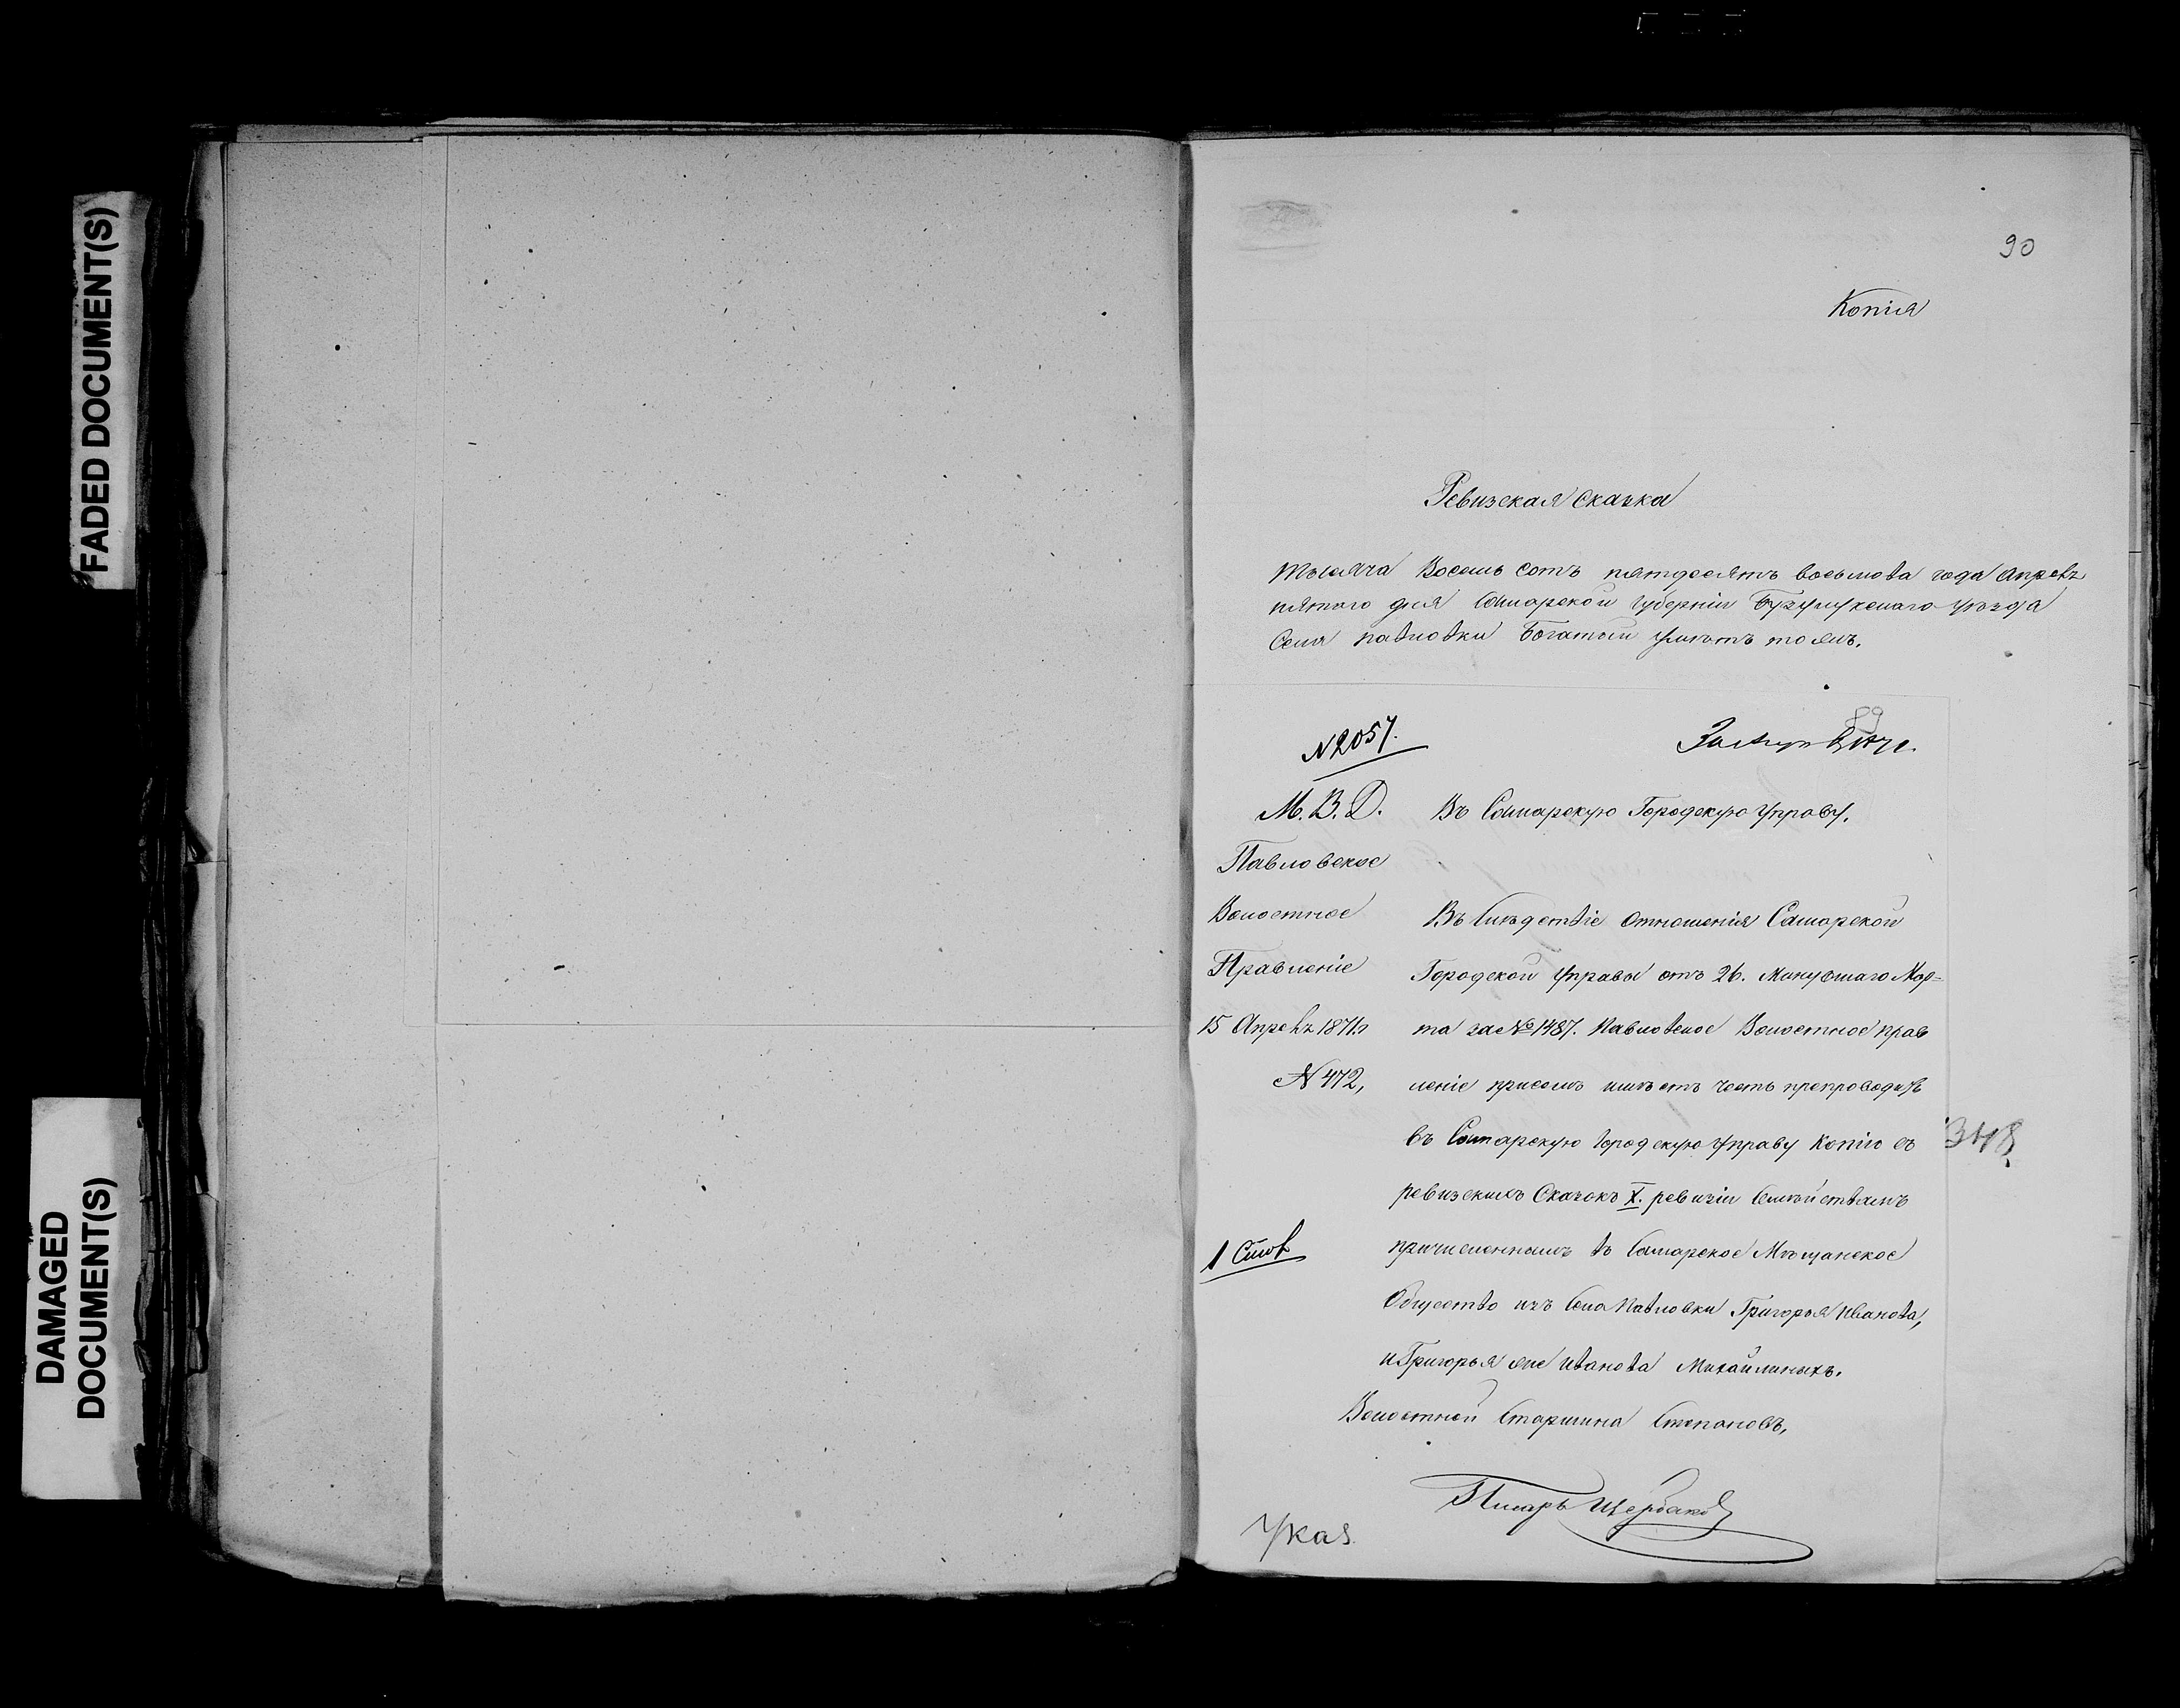 FADED DOCUMENT(S)
DAMAGED
DOCUMENT(S)
90
Копія
Ревизская сказка
Тысяча Восемь сотъ пятдесятъ восьмова года Апрѣля
пятаго дня Самарской губерніи Бузулукскаго уѣзда
Села Павловки Богатый Умѣтъ тожъ.
N 2057.
89
М. В. Д.
Въ Самарскую Городскую Управу.
Павловское
Волостное
Правленіе
15 Апрѣля 1871 г
N 472,
Въ слѣдствіе отношенія Самарской
Городской Управы отъ 26. Минувшаго Мар=
та за № 1487. Павловское Волостное прав
леніе присемъ имѣетъ честь препроводить
въ Самарскую городскую Управу копію съ
ревизскихъ Сказокъ X. ревизіи Семѣйствамъ
причисленнымъ въ Самарское Мѣщанское
Общество изъ Села Павловки Григорья Иванова,
и Григорья же Иванова Михайлиныхъ.
1348
Волостной Старшина Степановъ,
Писарь Щербаков